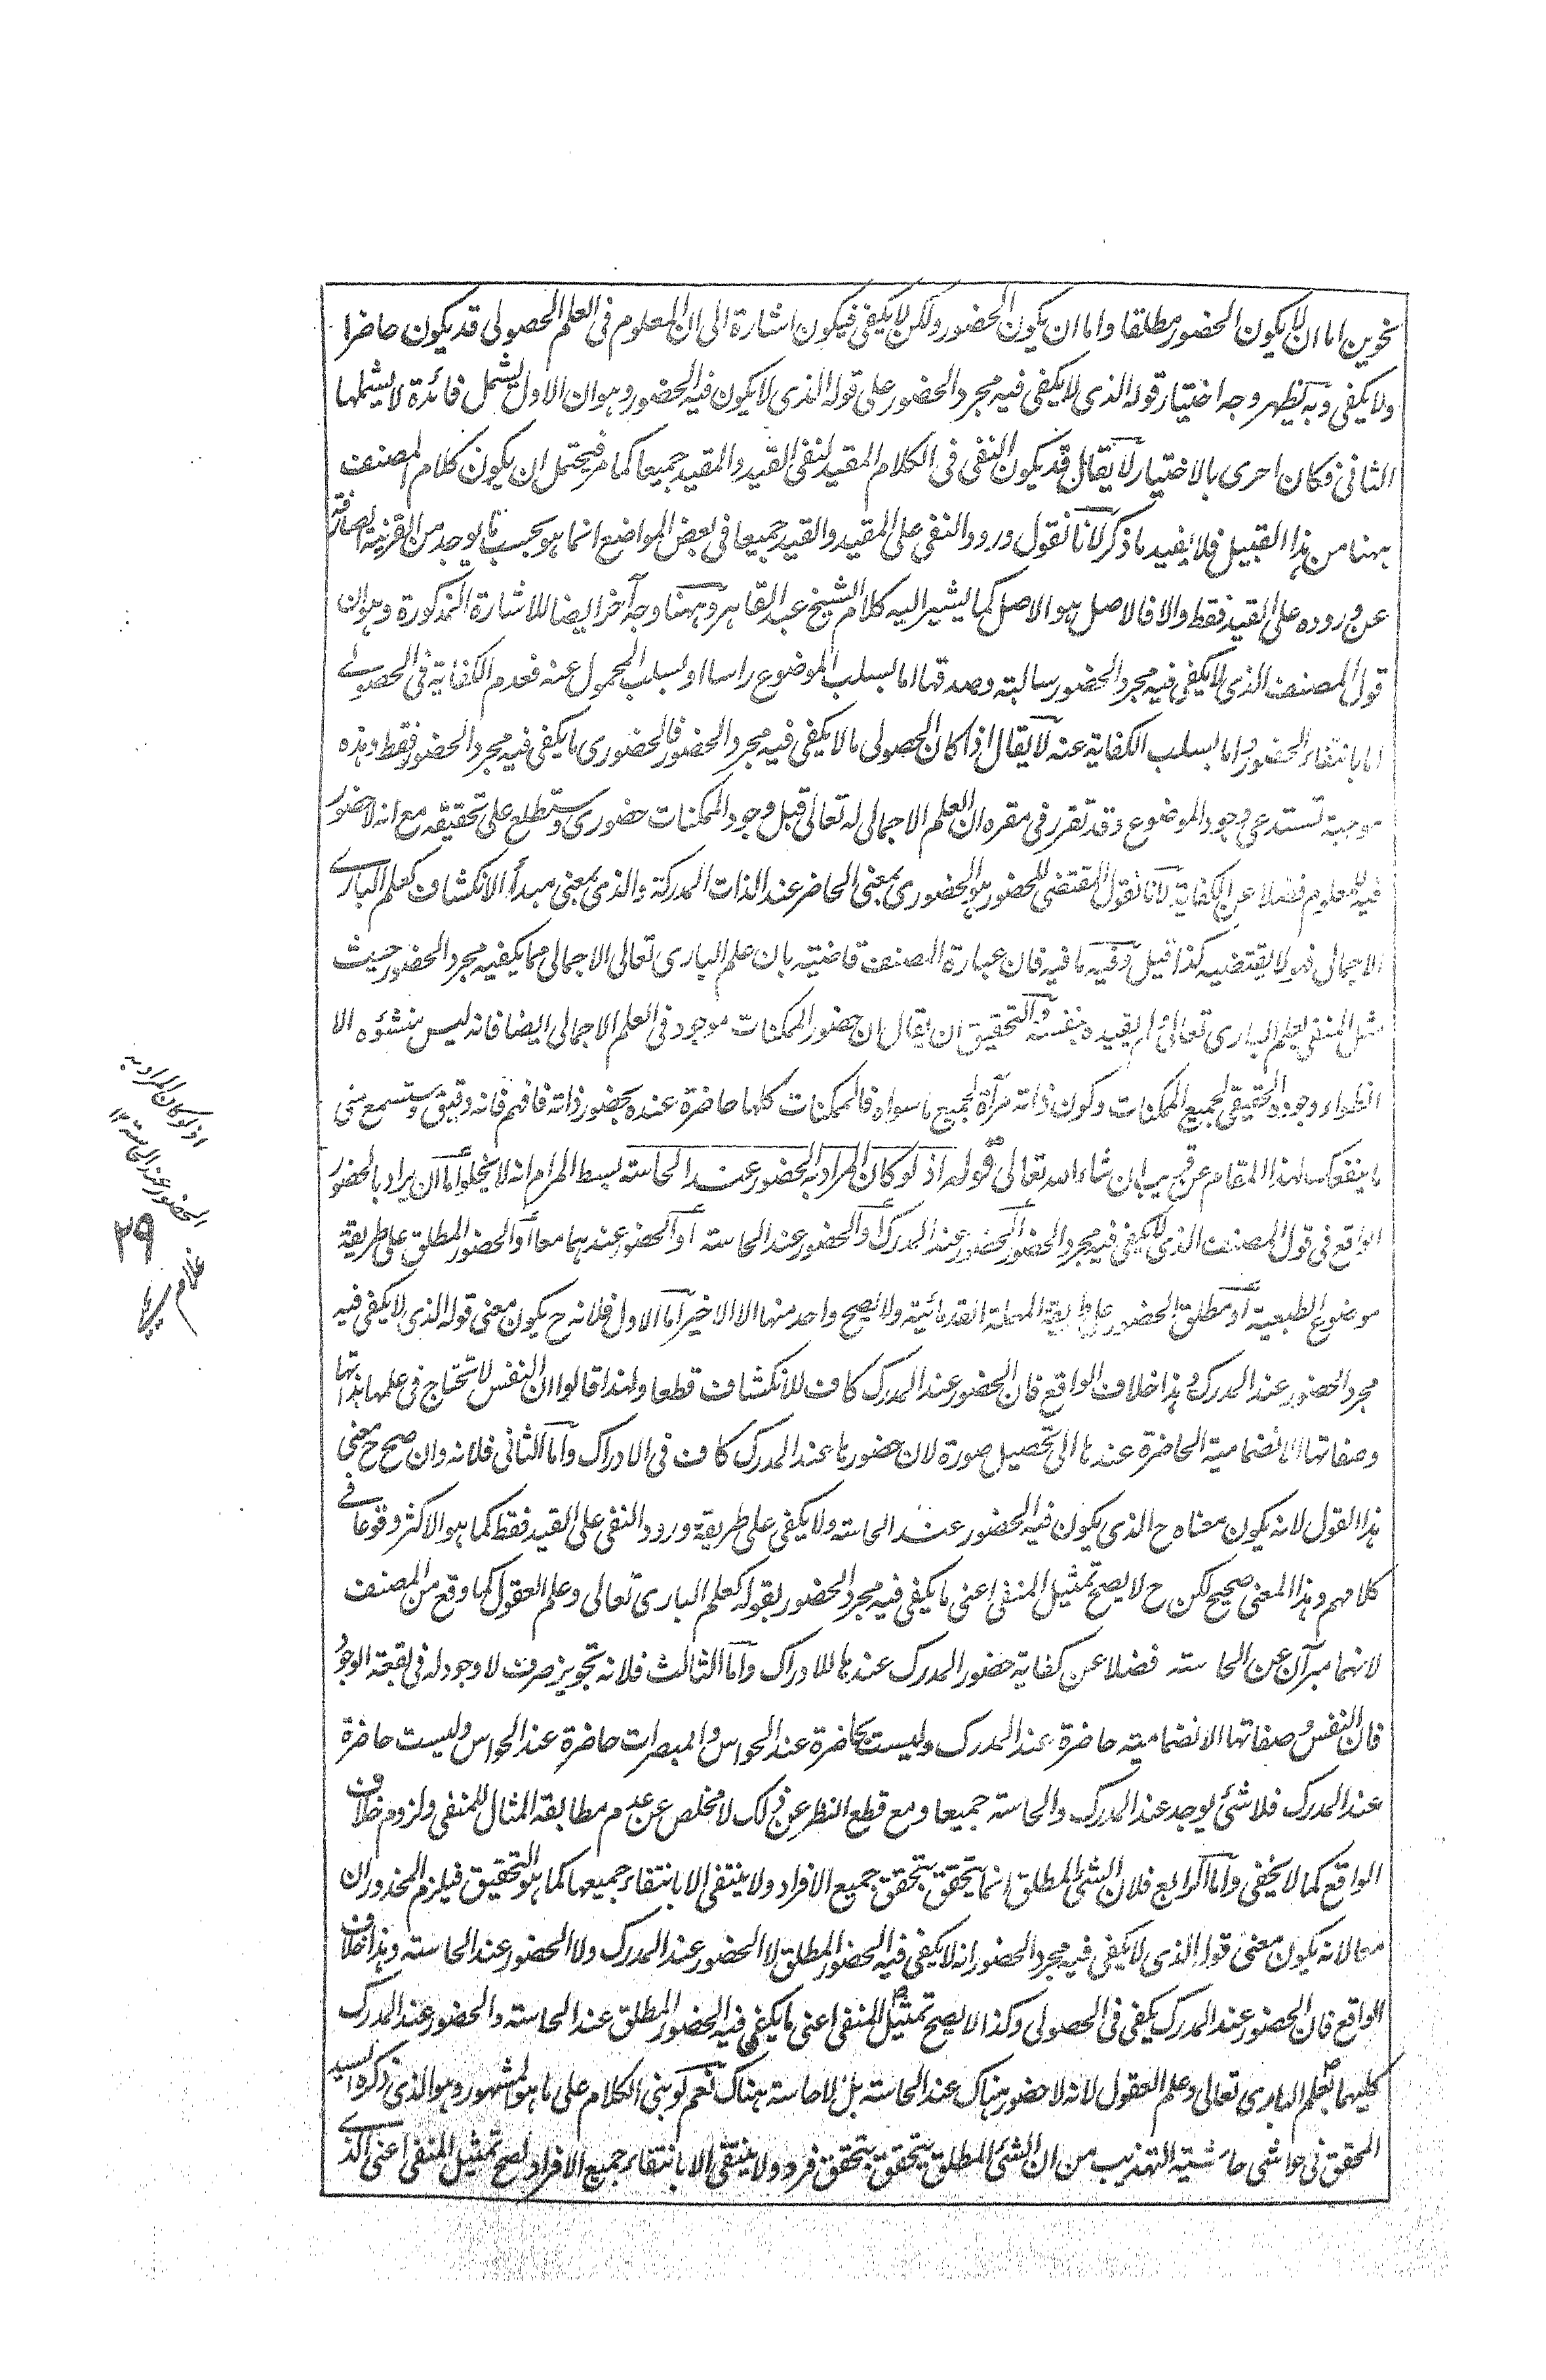 نحوين اما ان لا يكون الحضور مطلقا واما ان يكون الحضور ولكن لا يكفى فيكون اشارة الى ان المعلوم فى العلم الحصولى قد يكون حاضرا
ولا يكفى وبه يظهر وجه اختيار قوله الذى لا يكفى فيه مجرد الحضور على قوله الذى لا يكون فيه الحضور وهو ان الاول يشمل فائدة لا يشملها
الثانى فكان احرى بالاختيار لا يقال قد يكون النفى فى الكلام المقيد لنفى القيد والمقيد جميعا كما مر فيحتمل ان يكون كلام المصنف
ههنا من هذا القبيل فلا يفيد ما ذكر لانا نقول ورود النفى على المقيد والقيد جميعا فى بعض المواضع انما هو بحسب ما يوجد من القرينة الصارفة
عن وروده على القيد فقط والا فالاصل هو الاصل كما يشير اليه كلام الشيخ عبد القاهر وههنا وجه آخر ايضا للاشارة المذكورة وهو ان
قول المصنف الذى لا يكفى فيه مجرد الحضور سالبة وصدقها اما بسلب الموضوع راسا او بسلب المحمول عنه فعدم الكفاية فى الحصولى
اما بانتفاء الحضور واما بسلب الكفاية عنه لا يقال اذا كان الحصولى ما لا يكفى فيه مجرد الحضور فالحضورى ما يكفى فيه مجرد الحضور فقط وهذه
موجبة تستدعى وجود الموضوع وقد تقرر فى مقره ان العلم الاجمالى له تعالى قبل وجود الممكنات حضورى وستطلع على تحقيقه مع انه لا حضور
فيه للمعلوم فضلا عن الكفاية لانا نقول المقتضى للحضور هو الحضورى بمعنى الحاضر عند الذات المدركة والذى بمعنى مبدأ الانكشاف كعلم البارى
الاجمالى فهو لا يقتضيه كذا قيل وفيه ما فيه فان عبارة المصنف قاضية بان علم البارى تعالى الاجمالى مما يكفيه مجرد الحضور حيث
مثل المنفى بعلم البارى تعالى ولم يقيده بنفسه والتحقيق ان يقال ان حضور الممكنات موجود فى العلم الاجمالى ايضا فانه ليس منشؤه الا
انطواء وجوده الحقيقى لجميع الممكنات وكون ذاته مرآة لجميع ما سواه فالممكنات كلها حاضرة عنده بحضور ذاته فافهم فانه دقيق وستسمع منى
ما ينفعك لهذا المقام عن قريب ان شاء الله تعالى قوله اذ لو كان المراد به الحضور عند الحاسة بسط المرام انه لا يخلو اما ان يراد بالحضور
الواقع فى قول المصنف الذى لا يكفى فيه مجرد الحضور الحضور عند المدرك او الحضور عند الحاسة او الحضور عندهما معا او الحضور المطلق على طريقة
موضوع الطبعية او مطلق الحضور على طريقة المهملة القدمائية ولا يصح واحد منها الا الاخير اما الاول فلانه ح يكون معنى قوله الذى لا يكفى فيه
مجرد الحضور عند المدرك وهذا خلاف الواقع فان الحضور عند المدرك كاف للانكشاف قطعا ولهذا قالوا ان النفس لا تحتاج فى علمها بذاتها
وصفاتها الانضمامية الحاضرة عندها الى تحصيل صورة لان حضورها عند المدرك كاف فى الادراك واما الثانى فلانه وان صح ح معنى
هذا القول لانه يكون معناه ح الذى يكون فيه الحضور عند الحاسة ولا يكفى على طريقة ورود النفى على القيد فقط كما هو الاكثر وقوعا فى
كلامهم وهذا المعنى صحيح لكن ح لا يصح تمثيل المنفى اعنى ما يكفى فيه مجرد الحضور بقوله كعلم البارى تعالى وعلم العقول كما وقع من المصنف
لانهما مبرآن عن الحاسة فضلا عن كفاية حضور المدرك عندها للادراك واما الثالث فلانه تجويز صرف لا وجود له فى بقعة الوجود
فان النفس وصفاتها الانضمامية حاضرة عند المدرك وليست بحاضرة عند الحواس والمبصرات حاضرة عند الحواس وليست حاضرة
عند المدرك فلا شئ يوجد عند المدرك والحاسة جميعا ومع قطع النظر عن ذلك لا مخلص عن عدم مطابقة المثال للمنفى ولزوم خلاف
الواقع كما لا يخفى واما الرابع فلان الشئ المطلق انما يتحقق بتحقق جميع الافراد ولا ينتفى الا بانتفاء جميعها كما هو التحقيق فيلزم المحذوران
معا لانه يكون معنى قوله الذى لا يكفى فيه مجرد الحضور انه لا يكفى فيه الحضور المطلق لا الحضور عند المدرك ولا الحضور عند الحاسة وهذا خلاف
الواقع فان الحضور عند المدرك يكفى فى الحصولى وكذا لا يصح تمثيل المنفى اعنى ما يكفى فيه الحضور المطلق عند الحاسة والحضور عند المدرك
كليهما بعلم البارى تعالى وعلم العقول لانه لا حضور هناك عند الحاسة بل لا حاسة هناك نعم لو بنى الكلام على ما هو المشهور وهو الذى ذكره السيد
المحقق فى حواشى حاشية التهذيب من ان الشئ المطلق يتحقق بتحقق فرد ولا ينتفى الا بانتفاء جميع الافراد لصح تمثيل المنفى اعنى الذى
اذ لو كان المراد به
الحضور عند الحاسة ١٢
٢٩
غلام